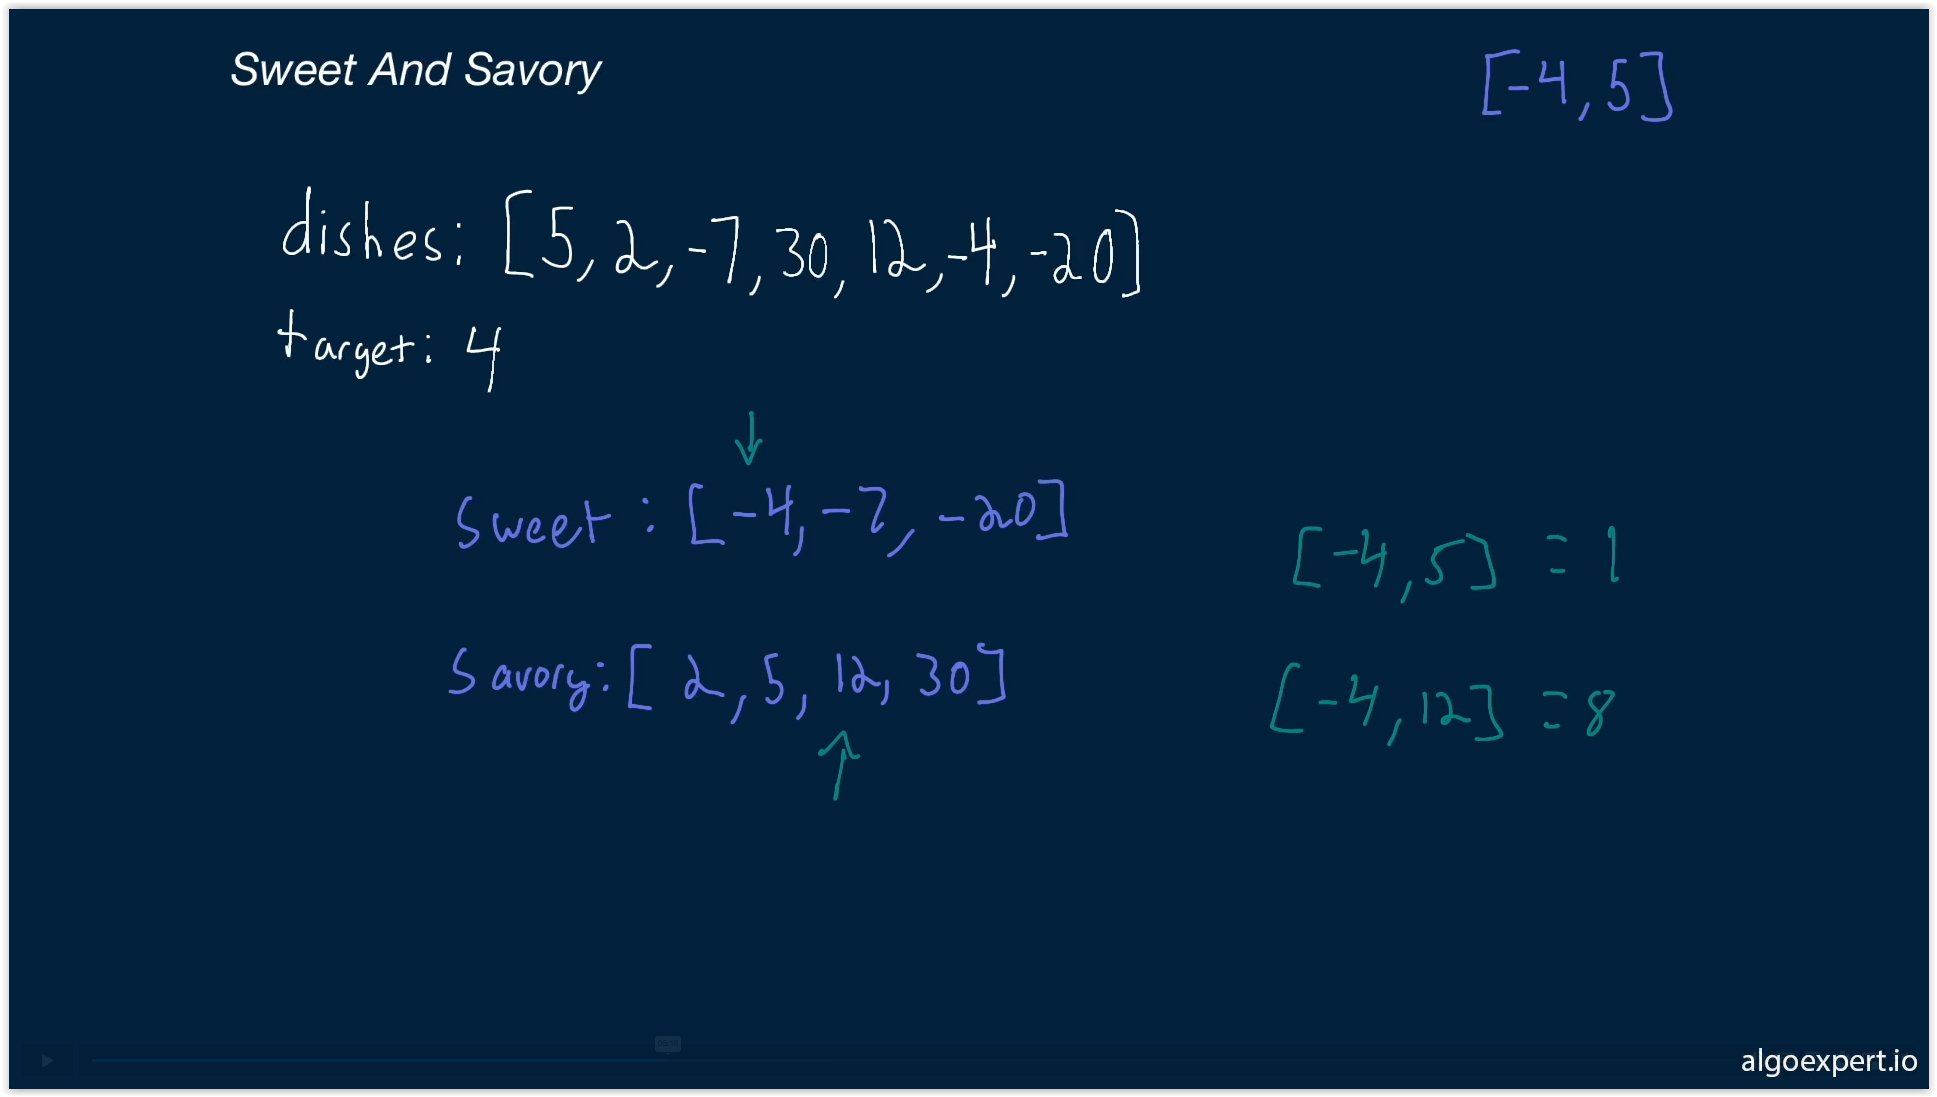 Sweet And Savory
[-4, 5]
dishes: [5, 2, -7, 30, 12, -4, -20]
target: 4
sweet: [-4, -7, -20]
[-4, 5] = 1
savory: [2, 5, 12, 30]
[-4, 12] = 8
algoexpert.io